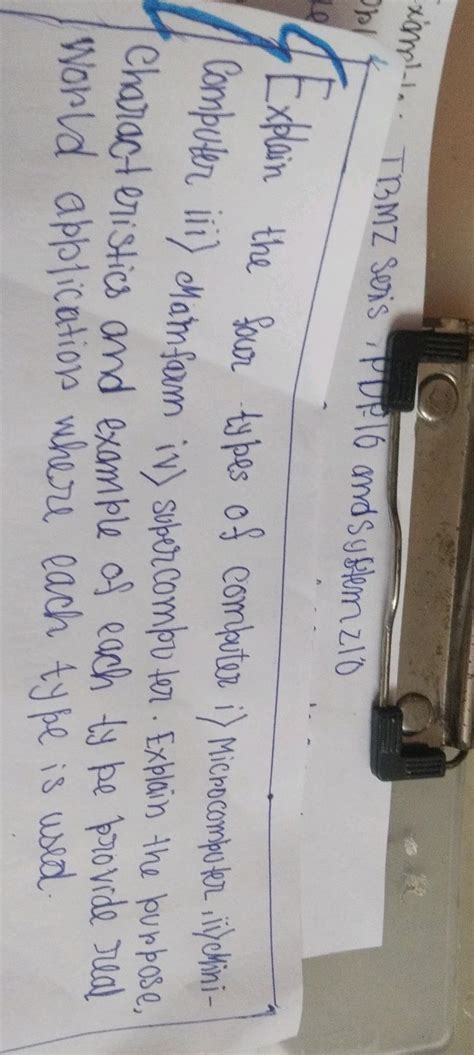 TBMZ Seris, PDP16 and System z10
Explain the four types of computer i) Microcomputer, ii) Mini-
Computer iii) Mainfarm iv) supercomputer. Explain the purpose,
characteristics and example of each type provide real
World application where each type is used.